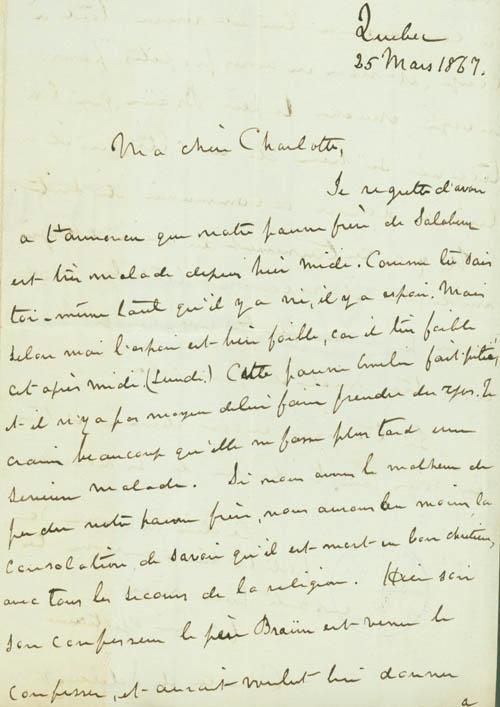 Quebec
25 Mars 1867.
Ma chère Charlotte,
Je regrette d'avoir
a t'annoncer que notre pauvre frère de Salabery
est très malade depuis hier midi. Comme tu sais
toi-même tant qu'il y a vie, il y a espoir. Mais
selon moi l'espoir est bien faible, car il très faible
cet après midi (Lundi.) Cette pauvre Emelie fait pitié,
et il n'y a pas moyen de lui faire prendre du repos. Je
crains beaucoup qu'elle ne fasse plus tard une
sérieuse malade. Si nous avons le malheur de
perdre notre pauvre frère, nous aurons au moins la
consolation, de savoir qu'il est mort en bon chrétien,
avec tous les secours de la religion. Hier soir
son confesseur le père Braün est venu le
confesser, et aurait voulut lui donner
a